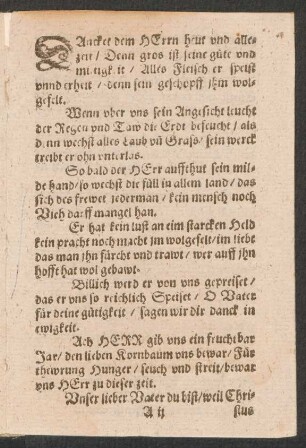 DAncket dem HErrn heut vnd alle-
zeit / Denn gros ist seine güte vnd
mi tigk it / Alles Fleisch er speist
vnnd erheit / denn sein geschöpff ihm wol-
gefelt.
Wenn vber vns sein Angesicht leucht
der Regen vnd Taw die Erdt befeucht / als
d nn wechst alles Laub vñ Graß / sein werck
treibt er ohn vnterlas.
So bald der HErr auffthut sein mil-
de hand / so wechst die füll in allem land / das
sich des frewet jederman / kein mensch noch
Vieh darff mangel han.
Er hat kein lust an eim starcken Held
kein pracht noch macht jm wolgefelt / im liebt
das man jhn fürcht vnd trawt / wer auff jhn
hofft hat wol gebawt.
Billich werd er von vns gepreiset /
das er vns so reichlich Speiset / O Vater
für deine gütigkeit / sagen wir dir danck in
ewigkeit.
Ach HERR gib vns ein feuchtbar
Jar / den lieben Kornbaum vns bewar / Für
thewrung Hunger / seuch vnd streit / bewar
vns HErr zu dieser zeit.
Vnser lieber Vater du bist / weil Chri-
A ij stus